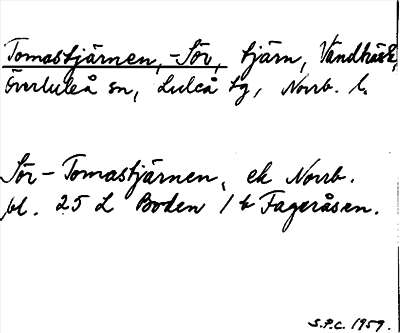 Tomastjärnen, -Sör, tjärn, Vändträsk,
Överluleå sn, Luleå tg, Norrb. l.
Sör-Tomastjärnen, ek Norrb.
bl. 25 L Boden 1 b Fageråsen.
S.P.C. 1959.